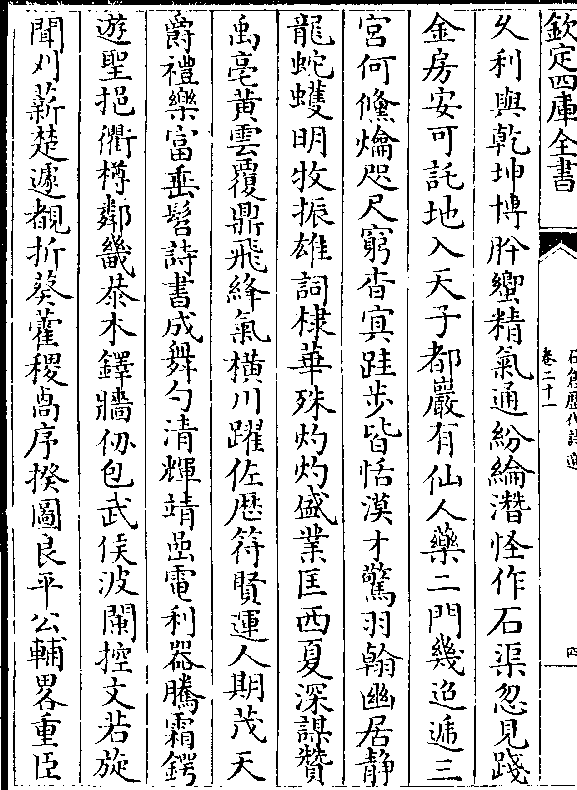 欽定四庫全書
卷二十一
四
久利與乾坤博肸蠁精氣通紛綸潛怪作石渠忽見踐
金房安可託地入天子都巖有仙人藥二門幾迢遞三
宮何儵爚咫尺窮杳冥跬步皆恬漠才驚羽翰幽居靜
龍蛇蠖明牧振雄詞棣華殊灼灼盛業匡西夏深謀贊
禹亳黃雲覆鼎飛絳氣橫川躍佐歷符賢運人期茂天
爵禮樂富垂髫詩書成舞勺清輝靖嵒電利器騰霜鍔
遊聖挹衢樽鄰畿恭木鐸牆仞包武侯波闌控文若旋
聞刈薪楚遽覩折葵藿稷卨序揆圖良平公輔畧重臣